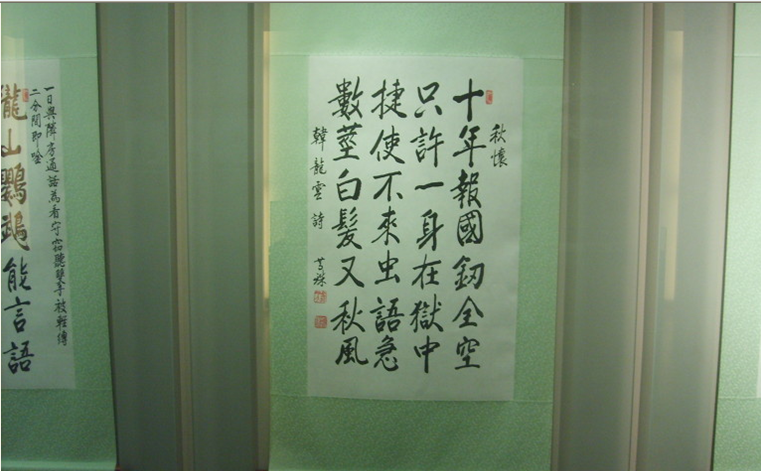 秋懷
十年報國釰全空
只許一身在獄中
捷使不來虫語急
數莖白髮又秋風
韓龍雲詩
一日與隣房通話為看守窃聽雙手被輕縛
二分間即唫
隴山鸚鵡能言語